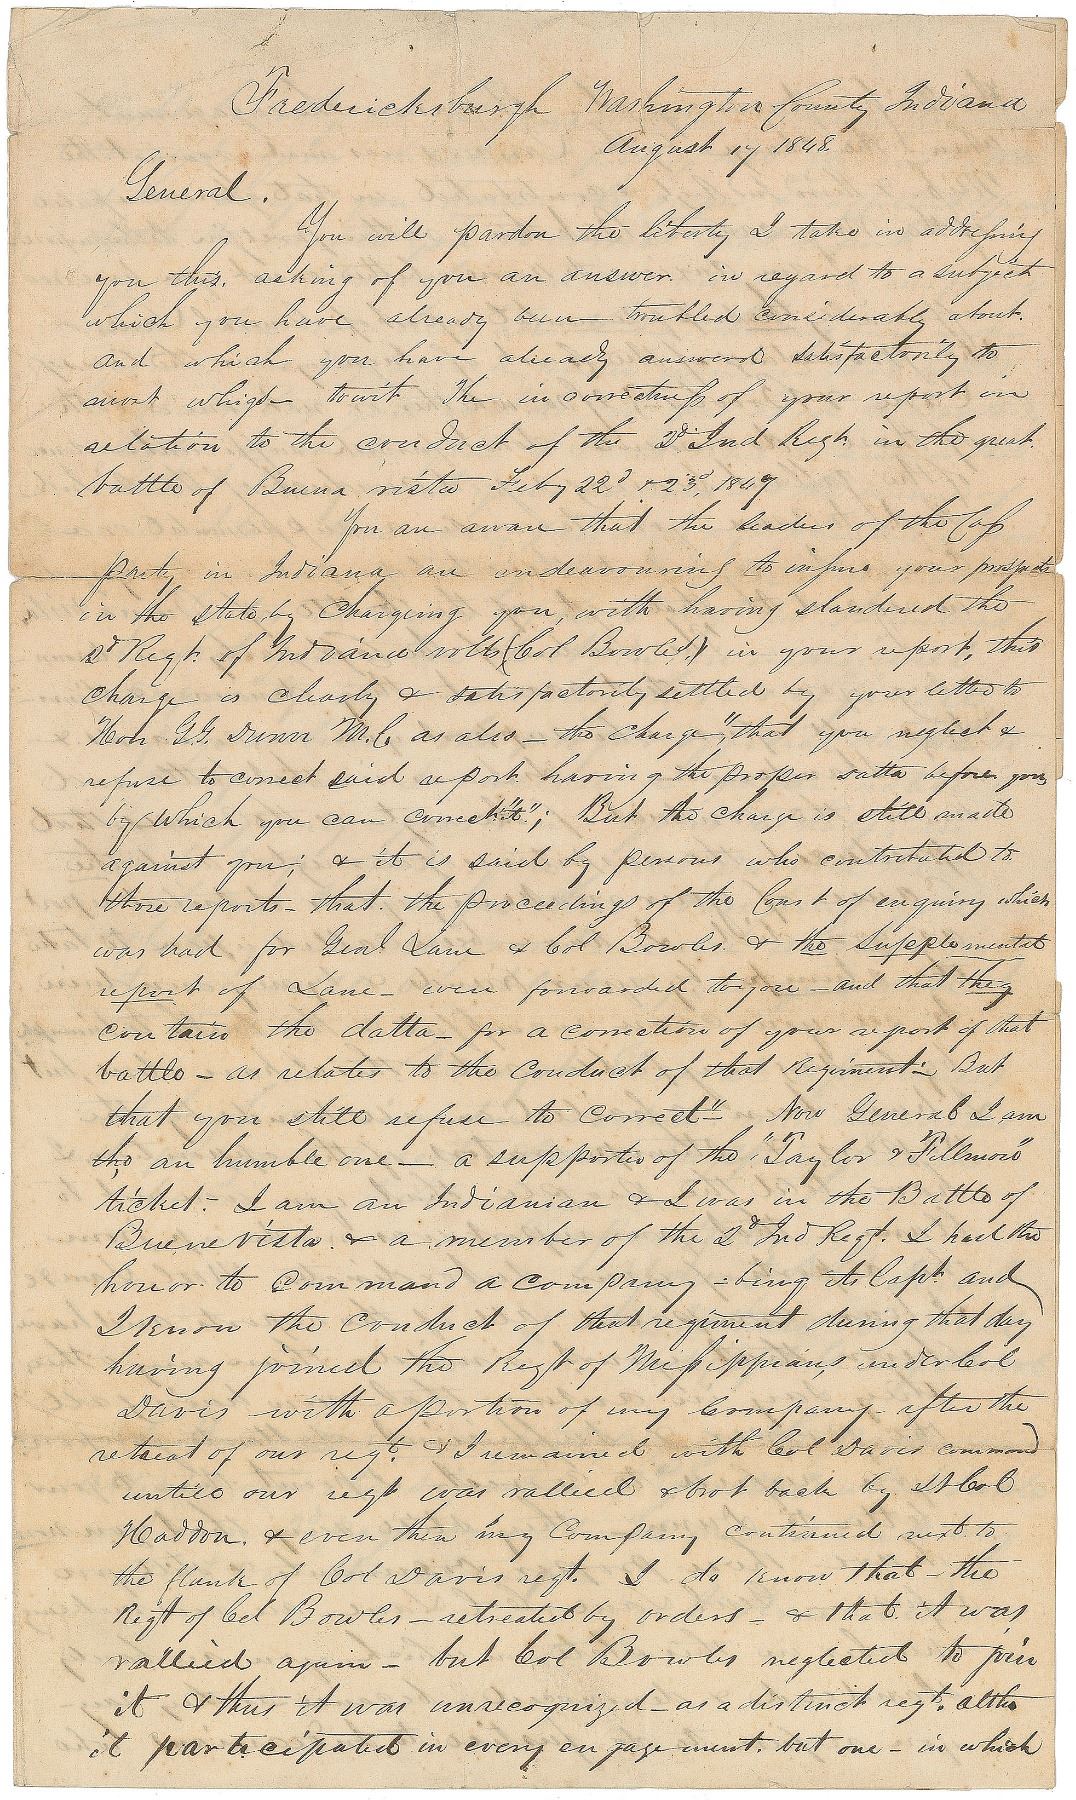 Fredericksburgh Washington County Indiana
August 17 1848
General.
You will pardon the liberty I take in addressing
you this. asking of you an answer. in regard to a subject
which you have already been troubled considerably about.
and which you have already answered satisfactorily to
most whigs — towit The incorrectness of your report in
relation to the conduct of the 2d. Ind Regt. in the great
battle of Buena vista Feby 22d & 23d, 1847
You are aware that the leaders of the Cass
party in Indiana are endeavouring to injure your prospects
in the state, by Chargeing you, with having slandered the
2d Regt. of Indiana volts (Col Bowles) in your report, this
charge is clearly & satisfactorily settled by your letter to
Hon G.G. Dunn M.C. as also — the charge "that you neglect &
refuse to correct said report having the proper datta before you,
by which you can correct "it"; But the charge is still made
against you; & it is said by persons who contributed to
those reports — that. the proceedings of the Court of enquiry which
was had for Genl Lane & Col Bowles. & the Supplemental
report of Lane — were forwarded to you — and that they
contain the datta — for a correction of your report of that
battle — as relates to the Conduct of that Regiment — But
that you still refuse to correct" — Now General I am
tho an humble one — a supporter of the "Taylor & Fillmore"
ticket — I am an Indianian & I was in the Battle of
Buene vista. & a member of the 2d Ind Regt. I had the
honor to command a company — being its Capt and
I know the conduct of that regiment during that day
having joined the Regt of Missippians, under Col
Davis with a portion of my Company — after the
retreat of our regt. & I remained with Col Davis command
untill our regt was rallied & brot back by Lt Col
Haddon. & even then my Company continued next to
the flank of Col Davis regt. I do know that — the
Regt of Col Bowles — retreated by orders — & that. it was
rallied again — but Col Bowles neglected to join
it & thus it was unrecognized — as a distinct regt. altho
it participated in every engagement. but one — in which